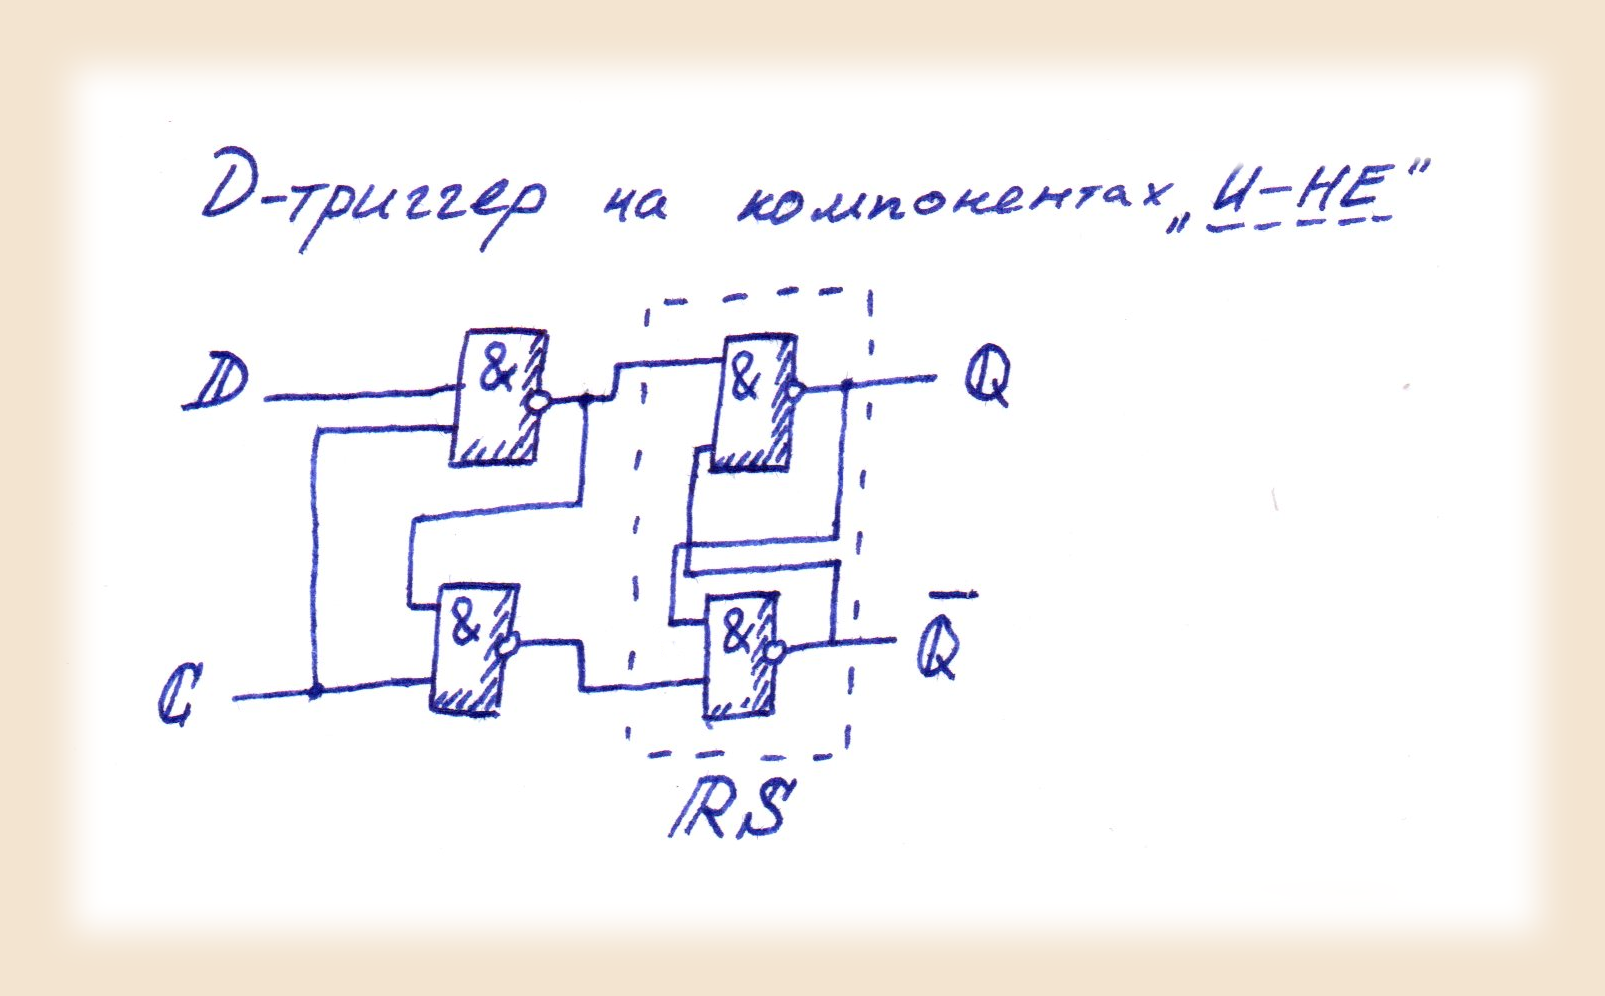 D-триггер на компонентах „И-НЕ"
D & & Q
C & & Q̅
RS